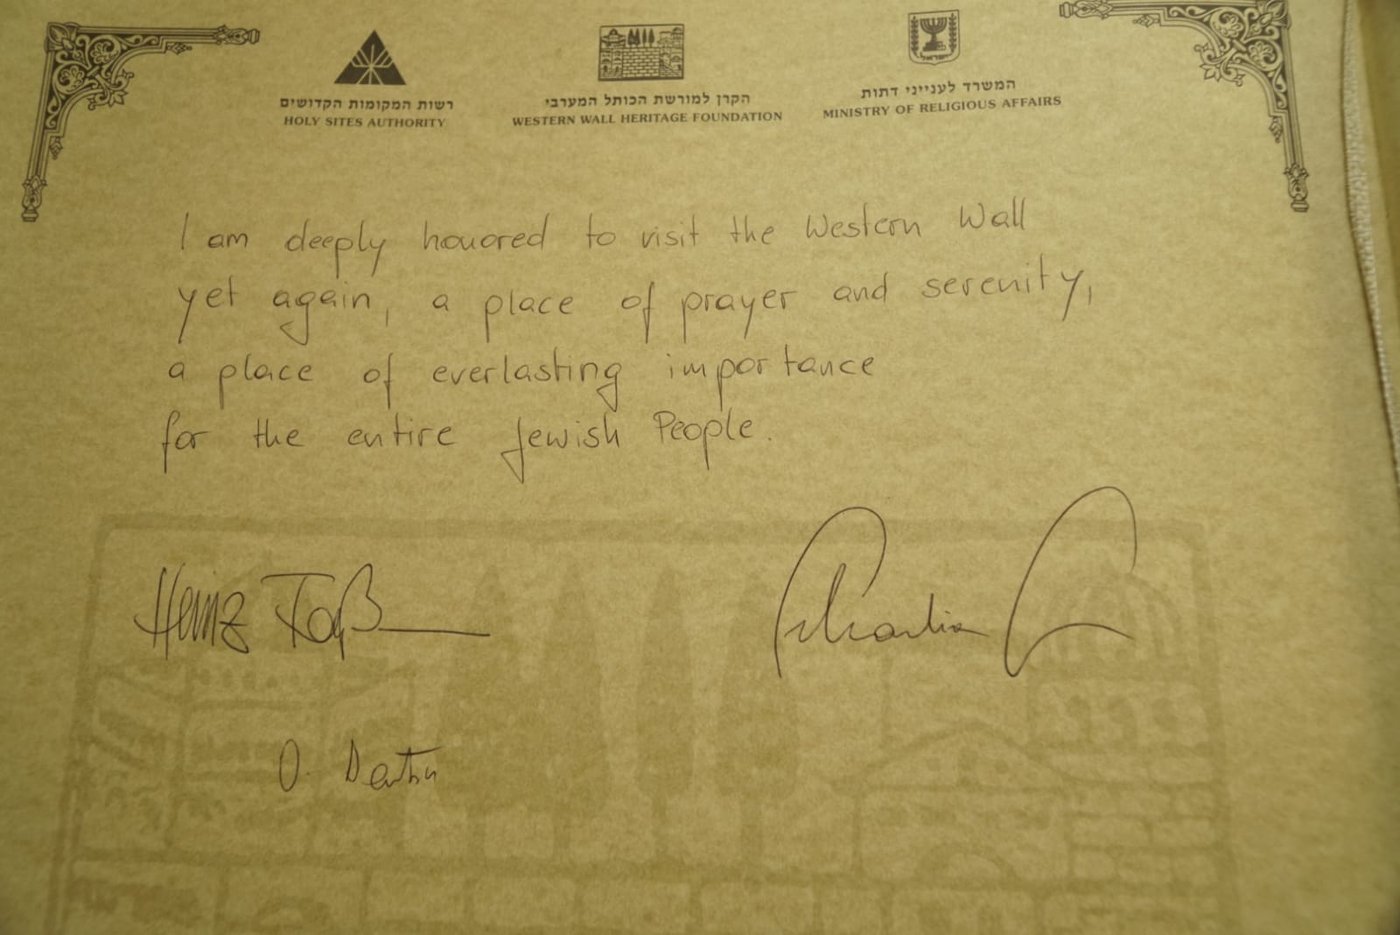 רשות המקומות הקדושים
HOLY SITES AUTHORITY
הקרן למורשת הכותל המערבי
WESTERN WALL HERITAGE FOUNDATION
המשרד לענייני דתות
MINISTRY OF RELIGIOUS AFFAIRS
ישראל
I am deeply honored to visit the Western Wall
yet again, a place of prayer and serenity,
a place of everlasting importance
for the entire Jewish People.
Heinz
O.